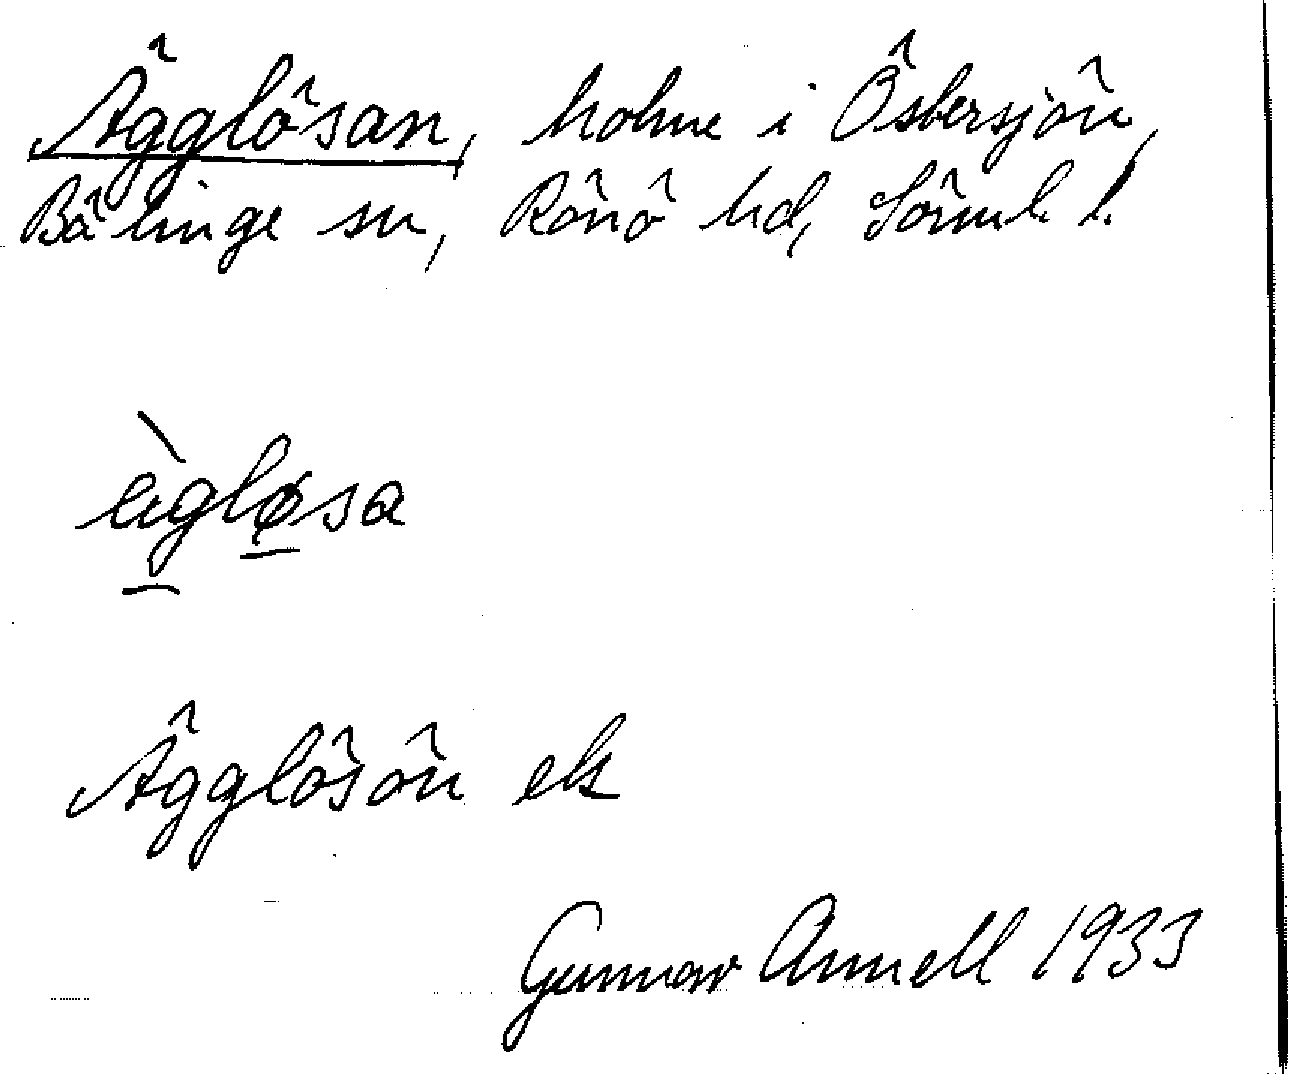 Ägglösan, holme i Östersjön,
Bälinge sn, Rönö hd, Sörml. l.
ä̀gløsa
Ägglösön ek
Gunnar Annell 1933